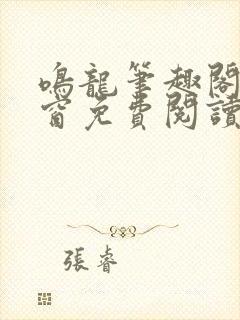 鳴龍筆趣閣
窗免費閱讀
張睿